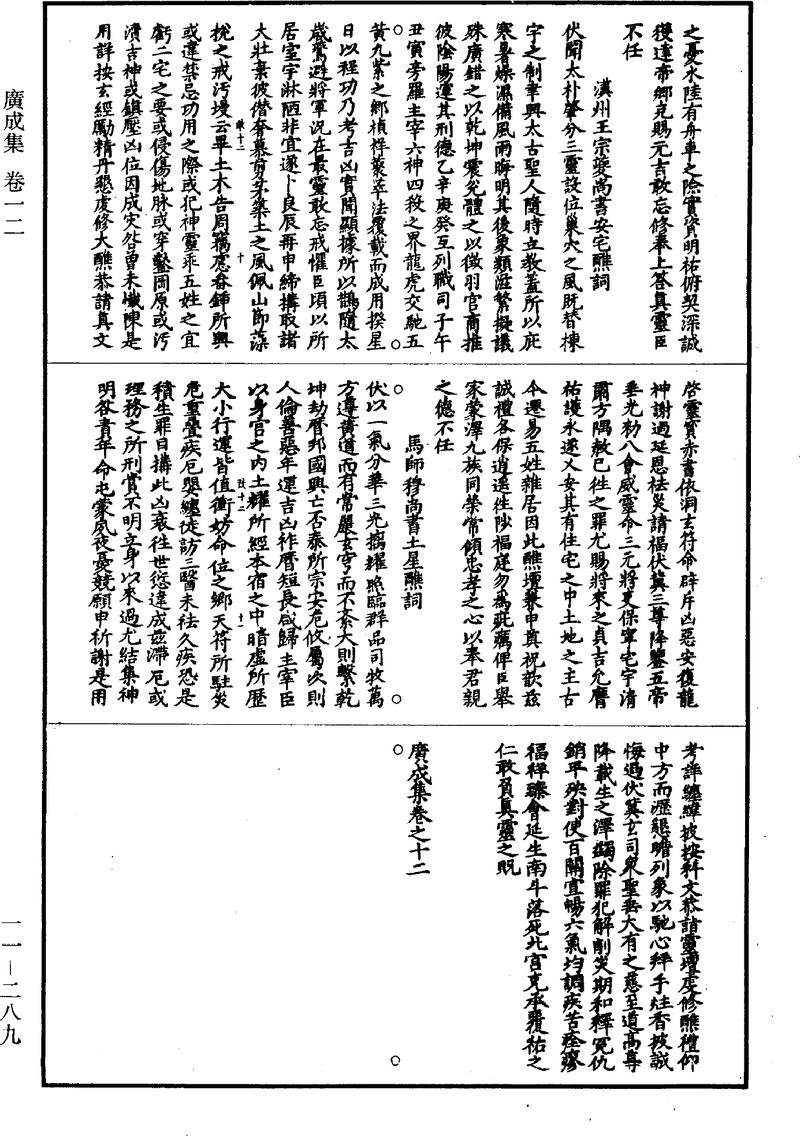 之憂水陸有舟車之險實資明祐俯契深誠
獲達帝鄉克賜元吉敢忘修奉上荅真靈臣
不任
漢州王宗夔尚書安宅醮詞
伏聞太朴肇分三靈設位巢穴之風既替棟
宇之制聿興太古聖人隨時立教蓋所以庇
寒暑燥濕備風雨晦明其後衆類滋繁擬議
殊廣錯之以乾坤震兌體之以徵羽宮商推
彼陰陽運其刑德乙辛庚癸互列職司子午
丑寅旁羅主宰六神四殺之界龍虎交馳五
黃九紫之鄉禎祥蔂萃法覆載而成用揆星
日以程功乃考吉凶實聞顯據所以鵲隨太
歲鷰避將軍況在最靈敢忘戒懼臣頃以所
居室宇湫陋非宜遂卜良辰再申締搆取諸
大壯棄彼僭奢慕剪茅築土之風佩山節藻
梲之戒汚墁云畢土木告周竊慮畚鍤所興
或違禁忌功用之際或犯神靈乖五姓之宜
虧二宅之要或侵傷地脉或穿鑿岡原或汚
瀆吉神或鎮壓凶位因成灾咎曾未懺陳是
用詳按玄經勵精丹懇虔修大醮恭請真文
啓靈寳赤書依洞玄符命辟斥凶惡安復龍
神謝過延恩祛災請福伏冀三尊降鑒五帝
垂光勑八會威靈命三元將吏保寧宅宇清
肅方隅赦已往之罪尤賜將來之貞吉允膺
祐護永遂乂安其有住宅之中土地之主古
今遷易五姓雜居因此醮壇兼申真祝歆兹
誠禮各保逍遥往陟福庭勿爲疵癘俾臣舉
家蒙澤九族同榮常傾忠孝之心以奉君親
之德不任
馬師穆尚書土星醮詞
伏以一氣分華三光摛耀照臨群品司牧萬
方遵黃道而有常嚴玄穹而不紊大則繫乾
坤劫曆邦國興亡否泰所宗安危攸屬次則
人倫善惡年運吉凶祚曆短長咸歸主宰臣
以身宮之内土耀所經本宿之中暗虛所歷
大小行運皆值衝妨命位之鄉天符所駐災
危重疊疾厄嬰纏徒訪三醫未祛久疾恐是
積生罪目搆此凶衰往世愆違成兹滯厄或
理務之所刑賞不明立身以來過尤結集神
明咎責年命屯蒙夙夜憂兢願申祈謝是用
考詳纏緯披按科文恭請靈壇虔修醮禮仰
中方而瀝懇瞻列象以馳心拜手炷香披誠
悔過伏冀玄司衆聖垂大有之慈至道高尊
降載生之澤蠲除罪犯解削災期和釋冤仇
銷平殃對使百關宣暢六氣均調疾苦痊瘳
福祥臻會延生南斗落死北宮克承覆祐之
仁敢負真靈之貺
廣成集卷之十二
廣成集 卷一二
一一—二八九